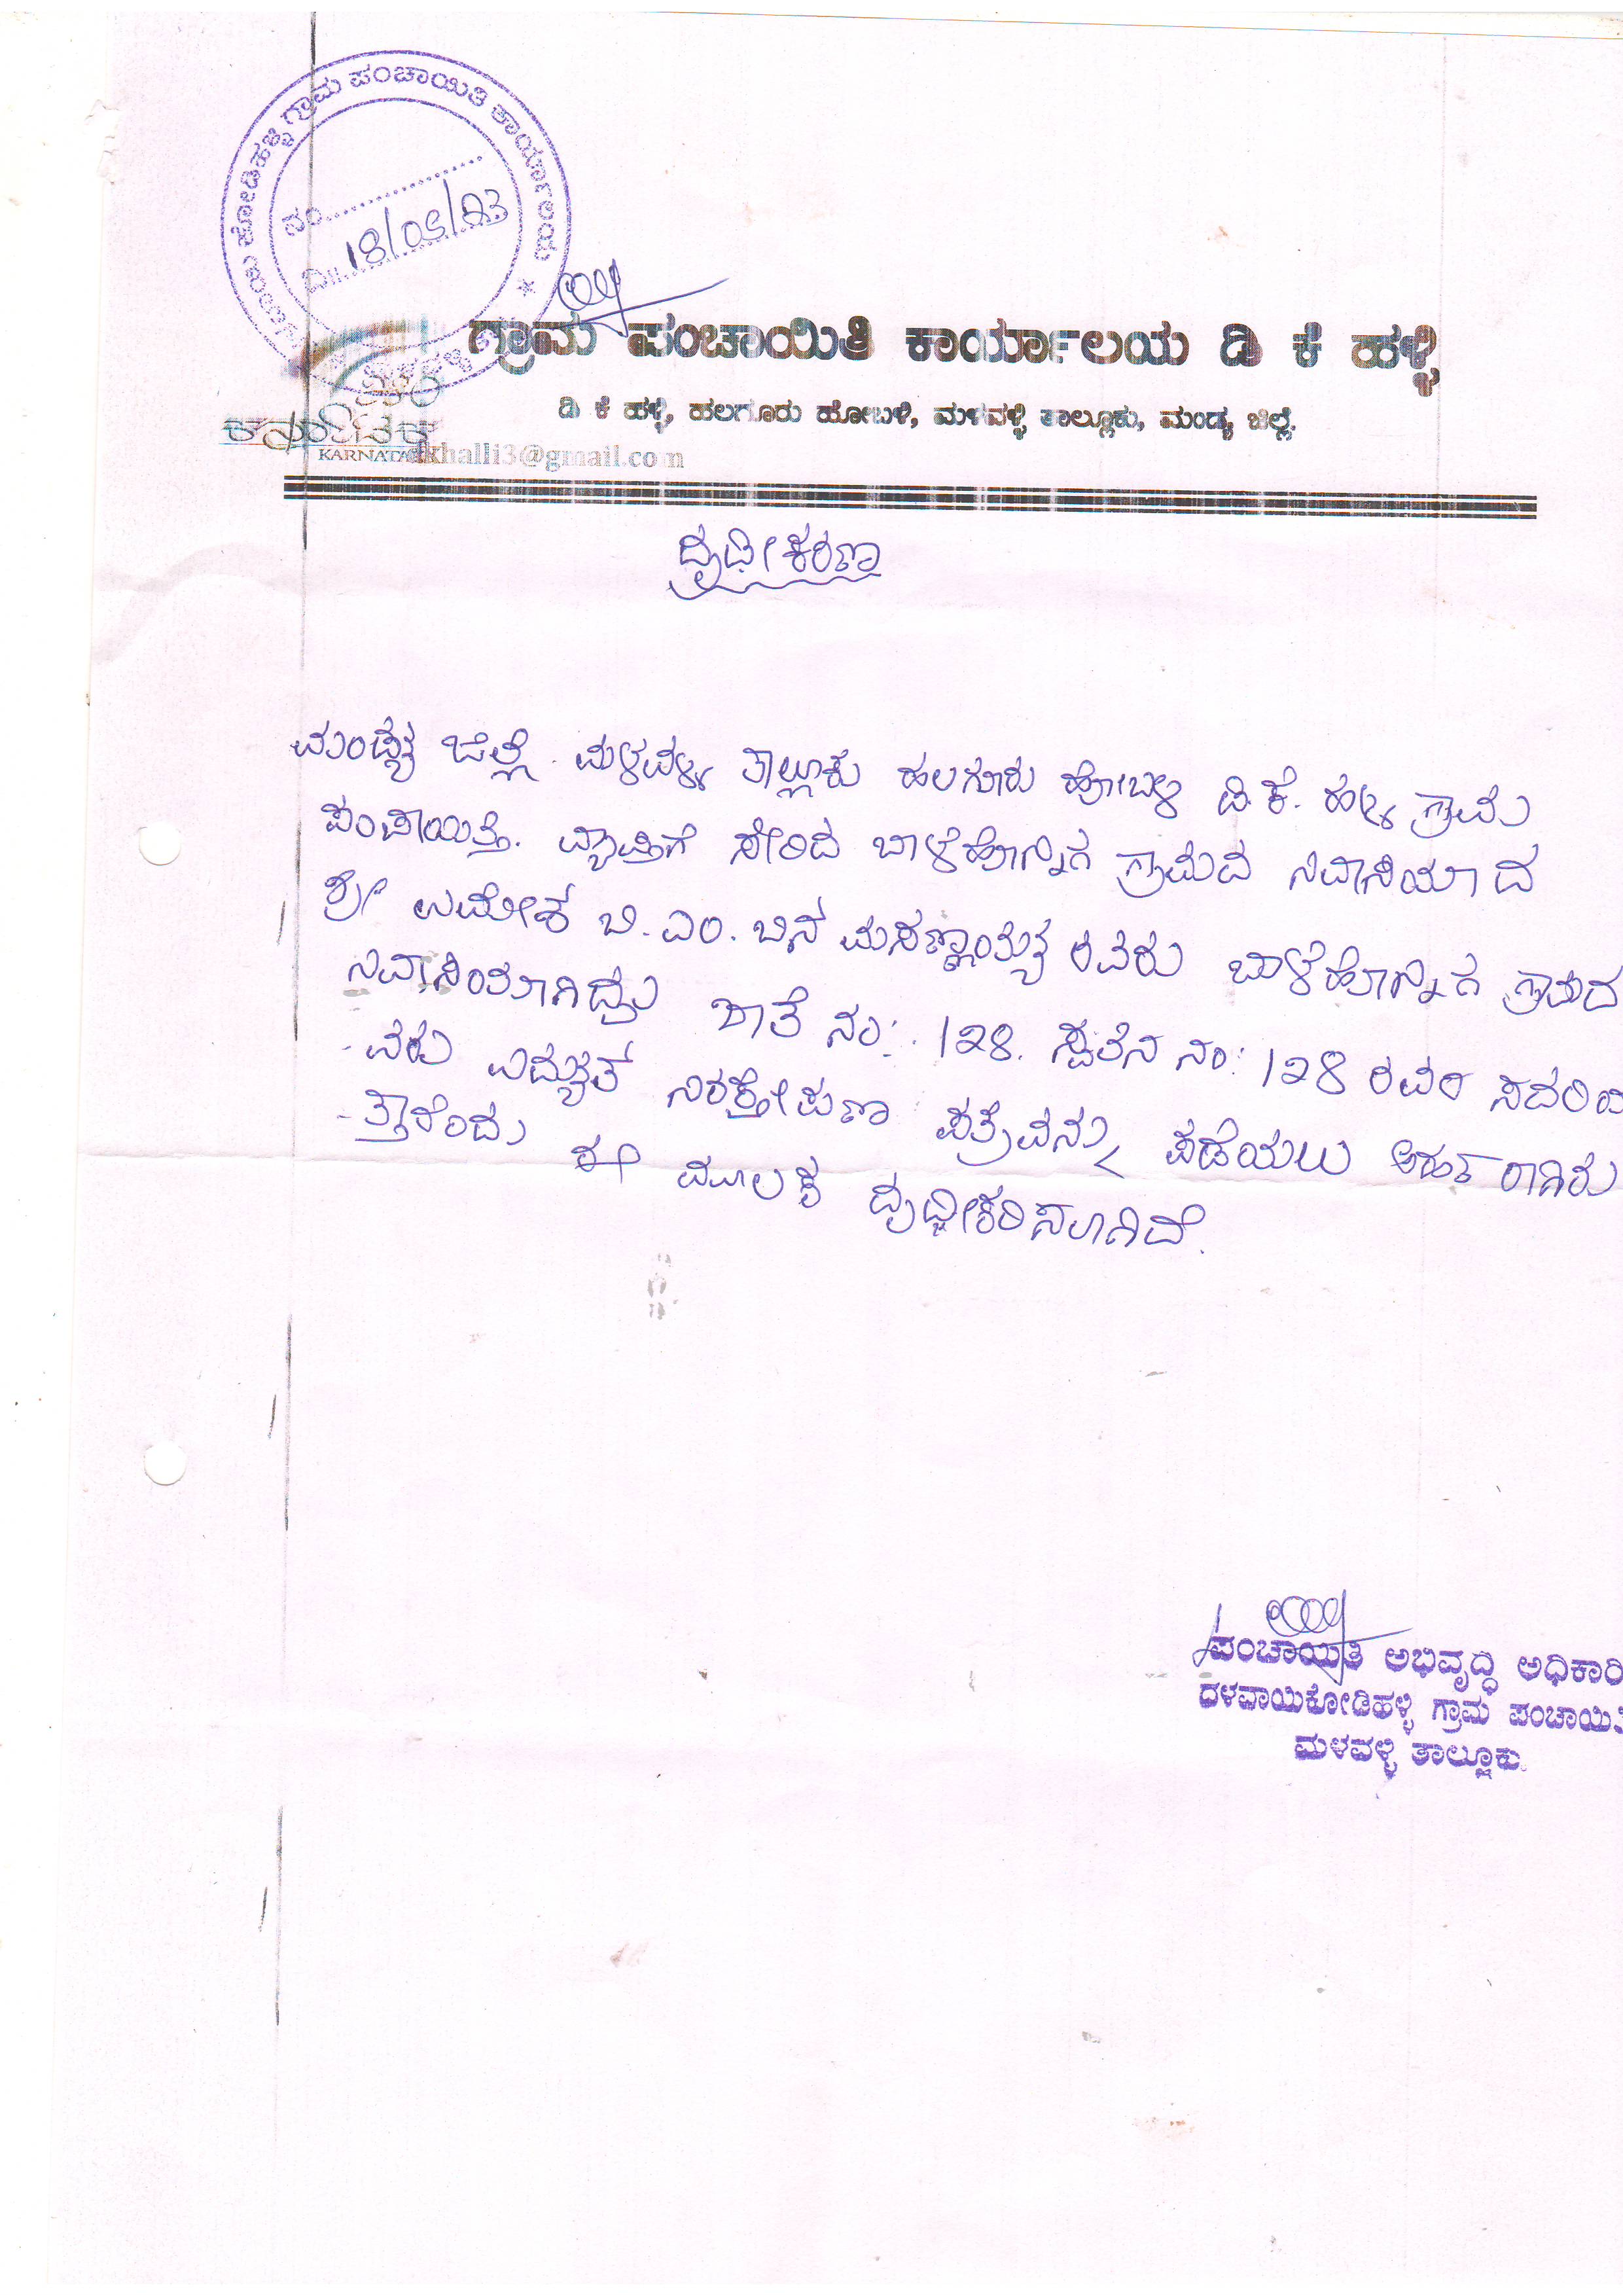 ದಳವಾಯಿ ಕೋಡಿಹಳ್ಳಿ ಗ್ರಾಮ ಪಂಚಾಯಿತಿ ಕಾರ್ಯಾಲಯ
ನಂ
ದಿ॥ 18/05/23
ಗ್ರಾಮ ಪಂಚಾಯಿತಿ ಕಾರ್ಯಾಲಯ ಡಿ ಕೆ ಹಳ್ಳಿ
ಡಿ ಕೆ ಹಳ್ಳಿ, ಹಲಗೂರು ಹೋಬಳಿ, ಮಳವಳ್ಳಿ ತಾಲ್ಲೂಕು, ಮಂಡ್ಯ ಜಿಲ್ಲೆ.
ಕರ್ನಾಟಕ
dkhalli3@gmail.com
ದೃಢೀಕರಣ
ಮಂಡ್ಯ ಜಿಲ್ಲೆ. ಮಳವಳ್ಳಿ ತಾಲ್ಲೂಕು ಹಲಗೂರು ಹೋಬಳಿ ಡಿ.ಕೆ. ಹಳ್ಳಿ ಗ್ರಾಮ
ಪಂಚಾಯಿತ್ತಿ. ವ್ಯಾಪ್ತಿಗೆ ಸೇರಿದ ಬಾಳೆಹೊನ್ನಿಗ ಗ್ರಾಮದ ನಿವಾಸಿಯಾದ
ಶ್ರೀ ಉಮೇಶ ಬಿ.ಎಂ. ಬಿನ್ ಮರಣ್ಣಯ್ಯ ರವರು ಬಾಳೆಹೊನ್ನಿಗ ಗ್ರಾಮದ
ನಿವಾಸಿಯಾಗಿದ್ದು ಖಾತೆ ನಂ: 128. ಸ್ವತ್ತಿನ ನಂ: 128 ರವರ ಸದರಿಯ
-ವರು ವಿದ್ಯುತ್ ನಿರಕ್ಷೇಪಣಾ ಪತ್ರವನ್ನು ಪಡೆಯಲು ಅರ್ಹರಾಗಿರು
-ತ್ತಾರೆಂದು ಈ ಮೂಲಕ ದೃಢೀಕರಿಸಲಾಗಿದೆ.
ಪಂಚಾಯಿತಿ ಅಭಿವೃದ್ಧಿ ಅಧಿಕಾರಿ
ದಳವಾಯಿಕೋಡಿಹಳ್ಳಿ ಗ್ರಾಮ ಪಂಚಾಯಿತಿ
ಮಳವಳ್ಳಿ ತಾಲ್ಲೂಕು.